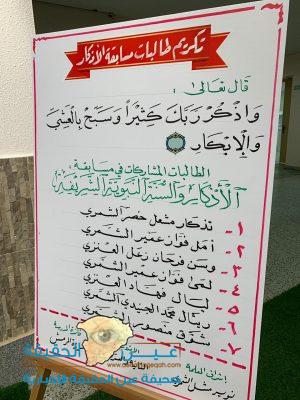 تكريم طالبات مسابقة الأذكار
قال تعالى :
وَاذْكُرْ رَبَّكَ كَثِيْرًا وَسَبِّحْ بِالْعَشِيِّ
وَالْإِبْكَارِ
الطالبات المشاركات في مسابقة :
الْأَذْكَارُ وَالسُّنَّةِ النَّبَوِيَّةِ الشَّرِيْفَةِ
١- تذكار مشعل خضر الشمري
٢- أمل فواز عمير الشمري
٣- وسن فرحان زعل العنزي
٤- لمى فواز عمير الشمري
٥- ليال فهاد العنزي
٦- ريتال محمد الجنيدي الشمري
٧- شوق منصور الشمري
عين الحقيقة
صحيفة عين الحقيقة الإخبارية